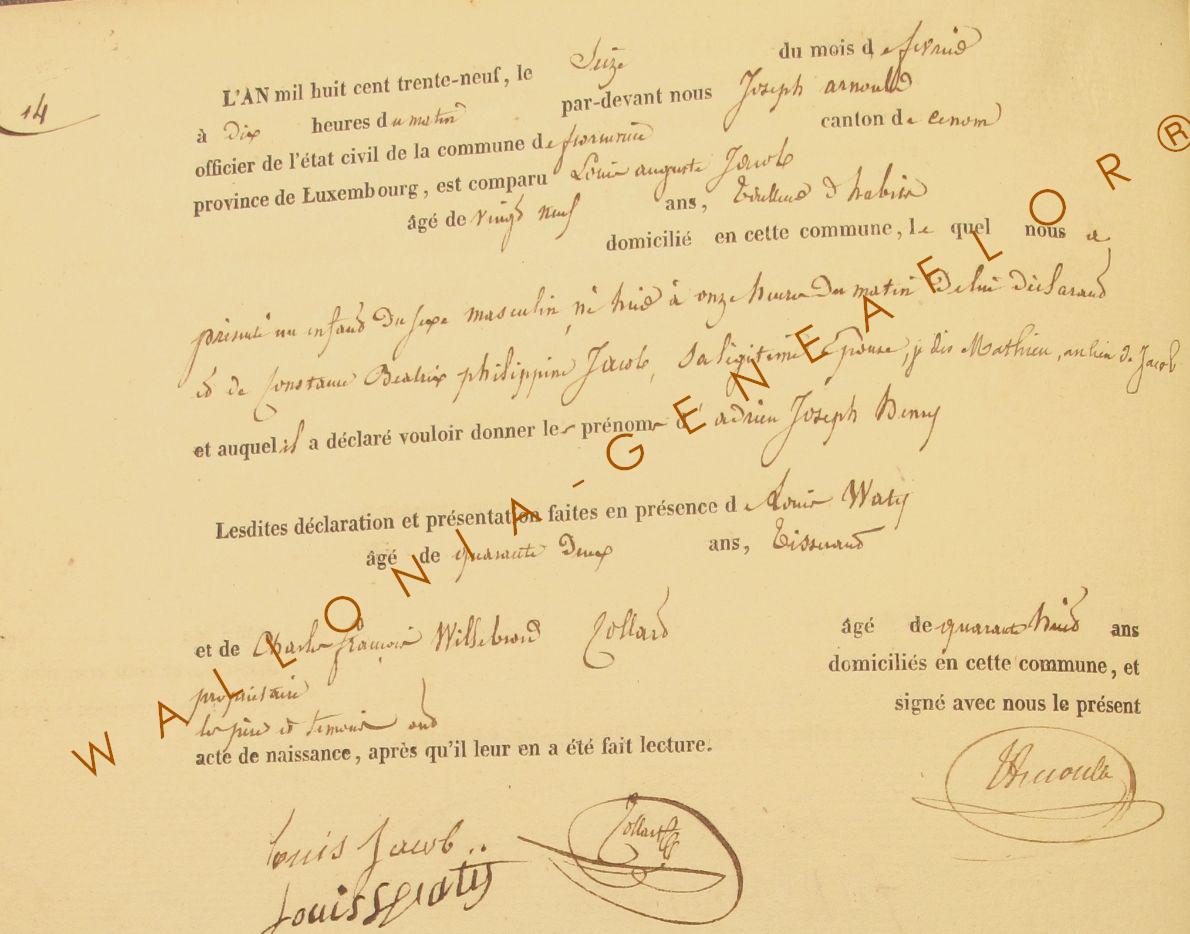 14
L'AN mil huit cent trente-neuf, le Seize du mois de fevrier
à dix heures du matin par-devant nous Joseph arnould
officier de l'état civil de la commune de canton de
province de Luxembourg, est comparu Louis auguste Jacob
âgé de vingt neuf ans, tailleur d'habits
domicilié en cette commune, le quel nous a
présenté un enfant du sexe masculin, né hier à onze heures du matin de lui déclarant
et de Constance Beatrix philippine Jacob, Sa légitime Epouse, je dis Mathieu, au lieu de Jacob
et auquel il a déclaré vouloir donner les prénoms d' adrien Joseph Henry
Lesdites déclaration et présentation faites en présence de Louis Waty
âgé de quarante Deux ans, Tisserand
et de Charles françois Willebrord Collard âgé de quarante huit ans
propriétaire domiciliés en cette commune, et
les père et temoins ont signé avec nous le présent
acte de naissance, après qu'il leur en a été fait lecture.
Louis Jacob Collard
Louis Waty
WALLONIA-GENEALOR®